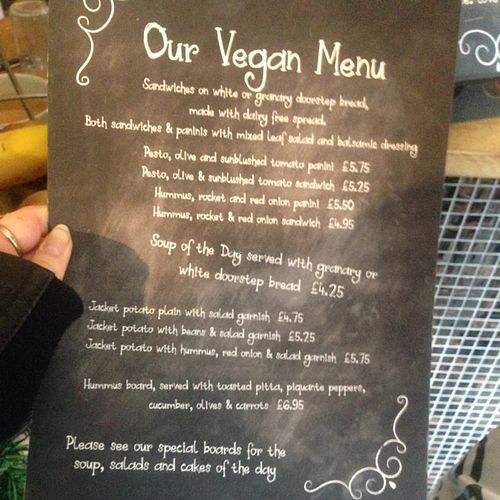 Our Vegan Menu
Sandwiches on white or granary doorstep bread,
made with dairy free spread.
Both sandwiches & paninis with mixed leaf salad and balsamic dressing
Pesto, olive and sunblushed tomato panini £5.75
Pesto, olive & sunblushed tomato sandwich £5.25
Hummus, rocket and red onion panini £5.50
Hummus, rocket & red onion sandwich £4.95
Soup of the Day served with granary or
white doorstep bread £4.25
Jacket potato plain with salad garnish £4.75
Jacket potato with beans & salad garnish £5.25
Jacket potato with hummus, red onion & salad garnish £5.75
Hummus board, served with toasted pitta, piquante peppers,
cucumber, olives & carrots £6.95
Please see our special boards for the
soup, salads and cakes of the day